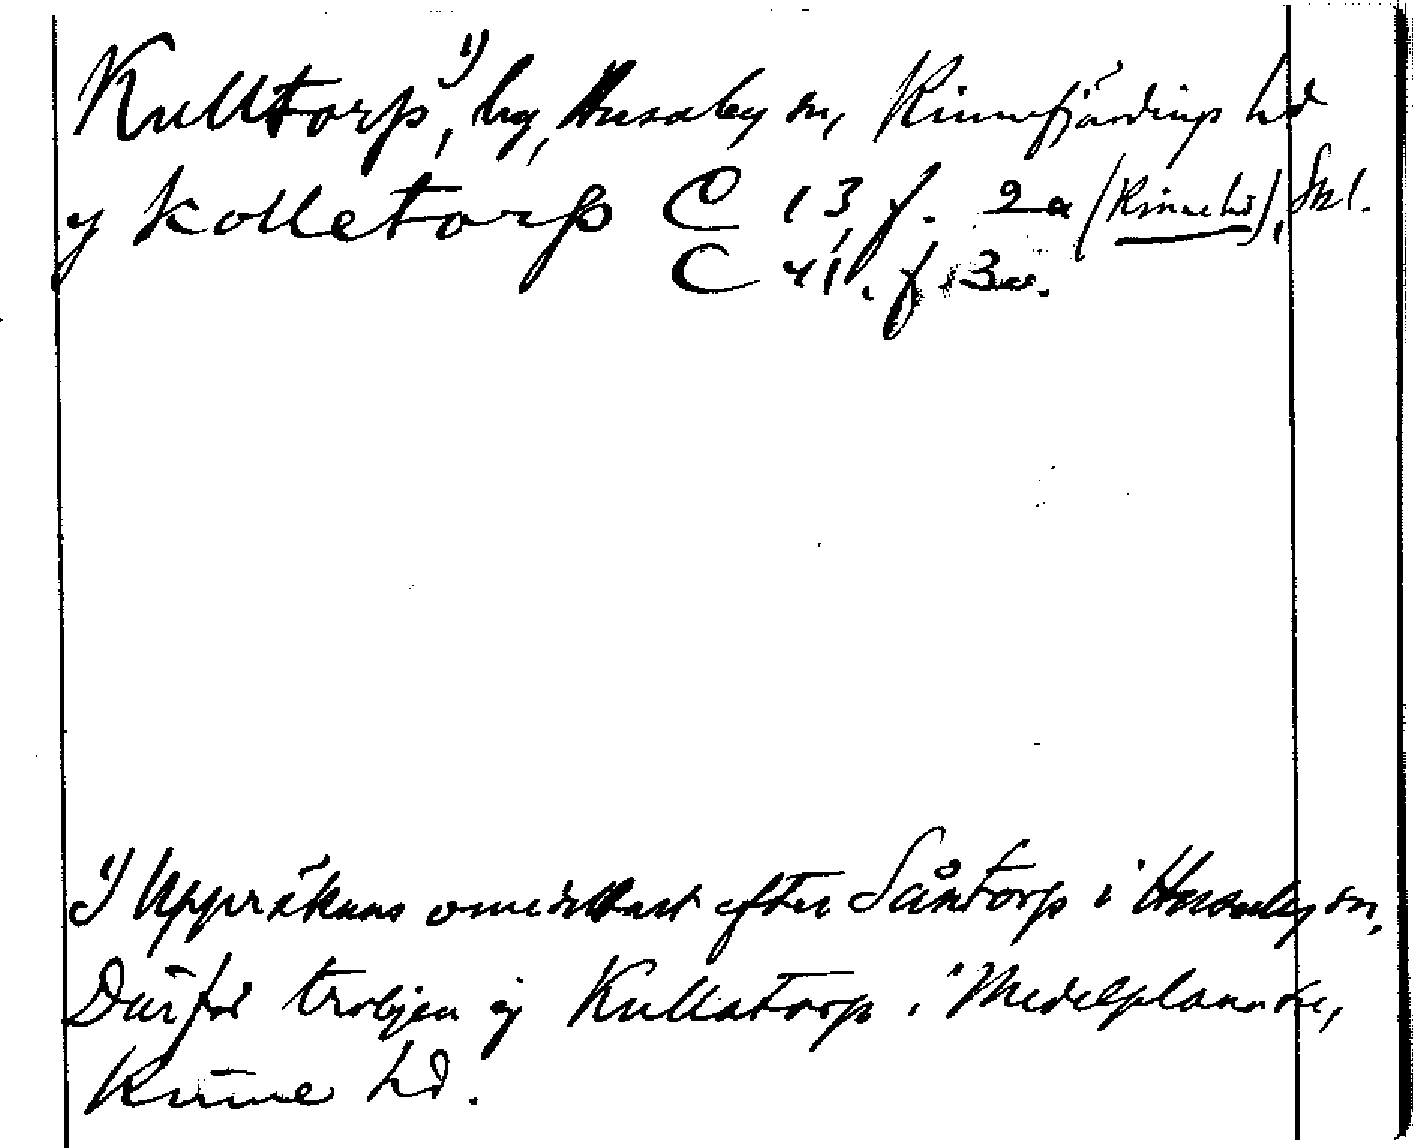 Kulltorp,¹⁾ by, Husaby sn, Kinnefjärdings hd
y kolletorp C 13, f. 2a (Kinne hd), Skl.
C 41. f 3v.
¹⁾ Uppräknas omedelbart efter Såntorp i Husaby sn,
Därför troligen ej Kullatorp i Medelplana sn,
Kinne hd.